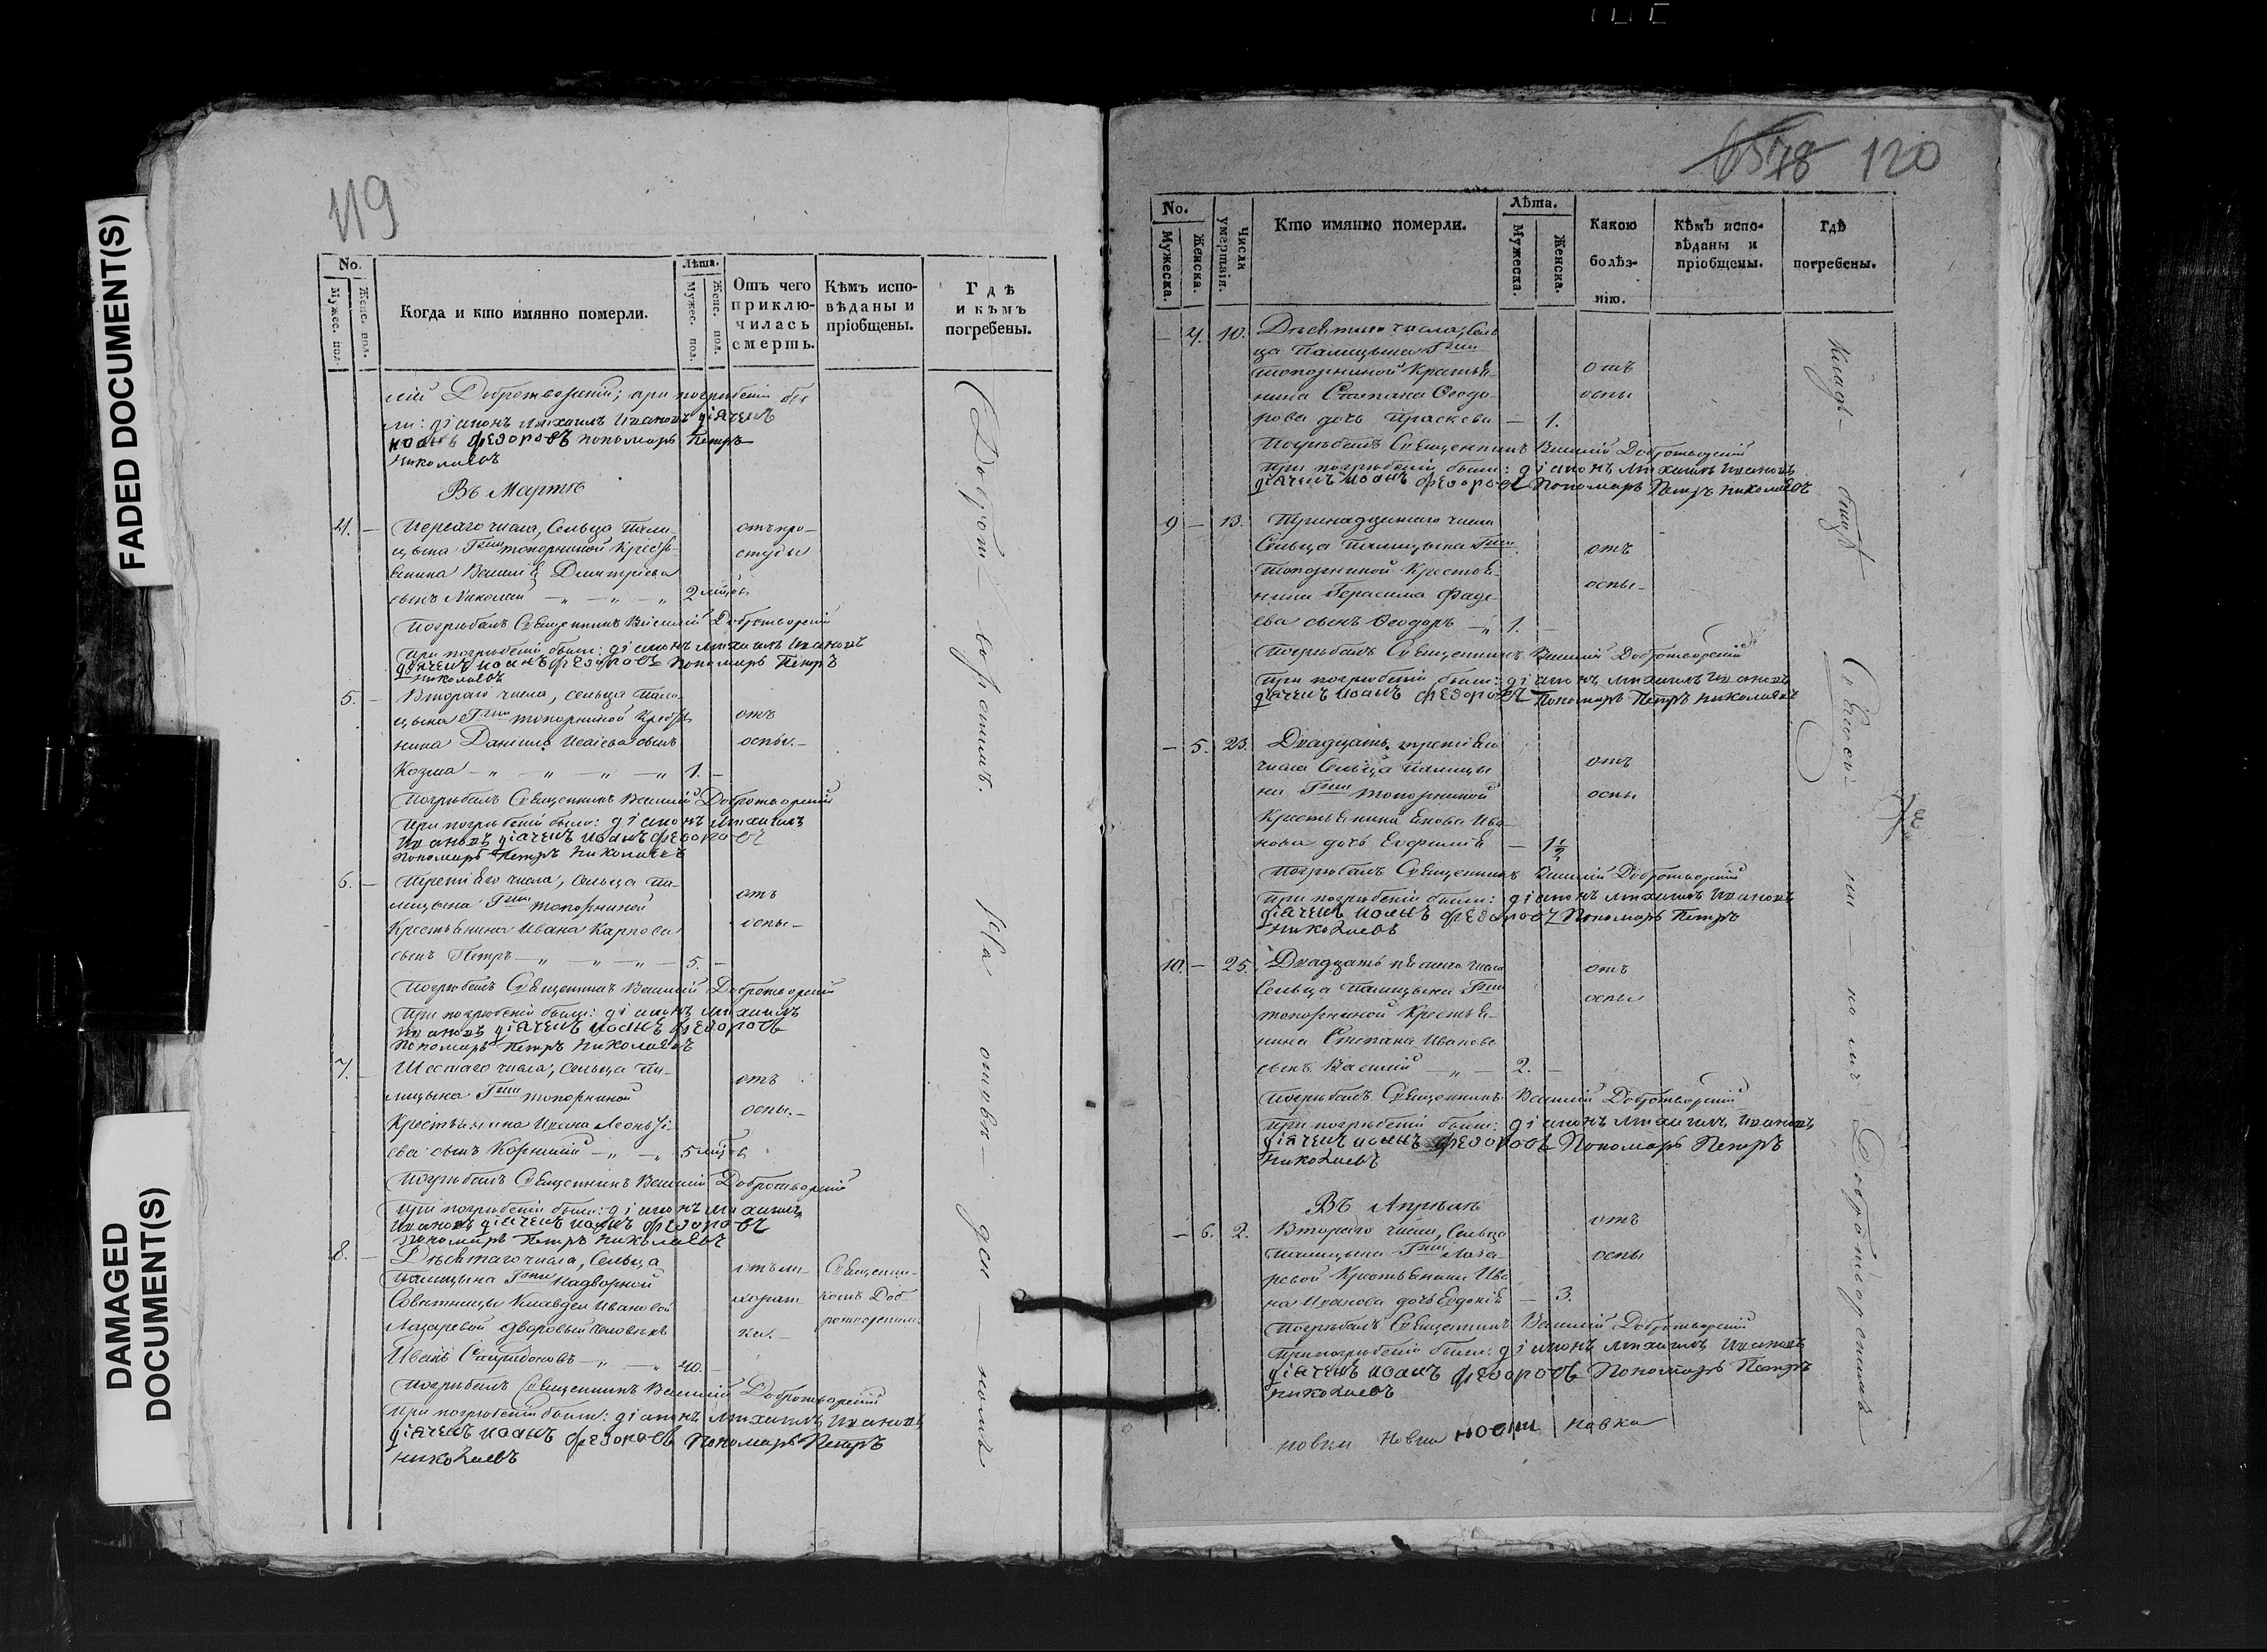 FADED DOCUMENT(S)
DAMAGED
DOCUMENT(S)
119
No.
Мужес. пол.
Женс. пол.
Когда и кто имянно померли.
Лѣта.
Мужес. пол.
Женс. пол.
Отъ чего
приклю-
чилась
смерть.
Кѣмъ испо-
вѣданы и
пріобщены.
Гдѣ
и кѣмъ
погребены.
лій Добротворскій; при погребеніи бы
ли: діаконъ Михаилъ Ивановъ дiячекъ
Иоанъ Федоровъ пономарь Петръ
Николаевъ
Въ Мартѣ
4. — Перваго числа, Сельца Пали-
цына Гжи Топорниной Кресть-
янина Василія Дмитріева
сынъ Николай — „ — „ — „ 2 мѣсяцовъ
отъ про-
студы
Погребалъ Священникъ Василій Добротворскій
При погребеніи были: діаконъ Михаилъ Ивановъ
дiячекъ Иоанъ Федоровъ Пономарь Петръ
Николаевъ
5. — Втораго числа, сельца Пали-
цына Гжи Топорниной Кресть
нина Даніила Исаіева сынъ
Козма — „ — „ — „ — „ 1. —
отъ
оспы. —
Погребалъ Священникъ Василій Добротворскій
При погребеніи были: діаконъ Михаилъ
Ивановъ дiячекъ Иоанъ Федоровъ
Пономарь Петръ Николаевъ
6. — Третьяго числа, Сельца Па-
лицына Гжи Топорниной
Крестьянина Ивана Карпова
сынъ Петръ — „ — „ — „ — 5. —
отъ
оспы —
Погребалъ Священникъ Василій Добротворскій
При погребеніи были: діаконъ Михаилъ
Ивановъ дiячекъ Иоанъ Федоровъ
Пономарь Петръ Николаевъ
7. — Шестаго числа, Сельца Па-
лицына Гжи Топорниной
Крестьянина Ивана Леонтьi-
ева сынъ Корнилий — „ — „ 5 мѣсяцовъ
отъ
оспы. —
Погребалъ Священникъ Василій Добротворскій
При погребеніи были: діаконъ Михаилъ
Ивановъ дiячекъ Иоанъ Федоровъ
Пономарь Петръ Николаевъ
8. — Дѣсятаго числа, Сельца
Палицына Гжи Надворной
Совѣтницы Клавдеи Ивановой
Лазаревой дворовый человѣкъ
Иванъ Спиридоновъ — „ — „ 40. —
отъ ли-
хорат-
ки. —
Священни-
комъ Доб
ротворскимъ
Погребалъ Священникъ Василій Добротворскій
При погребеніи были: діаконъ Михаилъ Ивановъ
дiячекъ Иоанъ Федоровъ Пономарь Петръ
Николаевъ
Добротворскимъ. На отвѣ — ден — номъ
6578 120
No.
Мужеска.
Женска.
Числа умертвія.
Кто имянно померли.
Лѣта.
Мужеска.
Женска.
Какою
болѣз-
нію.
Кѣмъ испо-
вѣданы и
пріобщены.
Гдѣ
погребены.
— 4. 10. Дѣсятаго числа, Сель
ца Палицына Гжи
Топорниной Крестья-
нина Степана Феодо-
рова дочь Праскева — 1.
отъ
оспы
Погребалъ Священникъ Василій Добротворскій
При погребеніи были: діаконъ Михаилъ Ивановъ
дiячекъ Иоанъ Федоровъ Пономарь Петръ Николаевъ
9 — 13. Тринадцатаго числа
Сельца Палицына Гжи
Топорниной Крестья-
нина Герасима Фаде-
ева сынъ Феодоръ — „ 1. —
отъ
оспы —
Погребалъ Священникъ Василій Добротворскій
При погребеніи были: діаконъ Михаилъ Ивановъ
дiячекъ Иоанъ Федоровъ Пономарь Петръ Николаевъ
— 5. 23. Двадцать третьяго
числа Сельца Палицы
на Гжи Топорниной
Крестьянина Ива
нова дочь Евфимія — 1½
отъ
оспы
Погребалъ Священникъ Василій Добротворскій
При погребеніи были: діаконъ Михаилъ Ивановъ
дiячекъ Иоанъ Федоровъ Пономарь Петръ
Николаевъ
10. — 25. Двадцать пятаго числа
Сельца Палицына Гжи
Топорниной Крестья-
нина Степана Иванова
сынъ Василий — „ — 2. —
отъ
оспы
Погребалъ Священникъ Василій Добротворскій
При погребеніи были: діаконъ Михаилъ Ивановъ
дiячекъ Иоанъ Федоровъ Пономарь Петръ
Николаевъ
Въ Апрѣлѣ
— 6. 2. Втораго числа, Сельца
Палицына Гжи Лаза-
ревой Крестьянина Ива
на Иванова дочь Евдокія — 3.
отъ
оспы
Погребалъ Священникъ Василій Добротворскій
При погребеніи были: діаконъ Михаилъ Ивановъ
дiячекъ Иоанъ Федоровъ Пономарь Петръ
Николаевъ
Кладъ — бищѣ Священ — ни — комъ Добротворскимъ